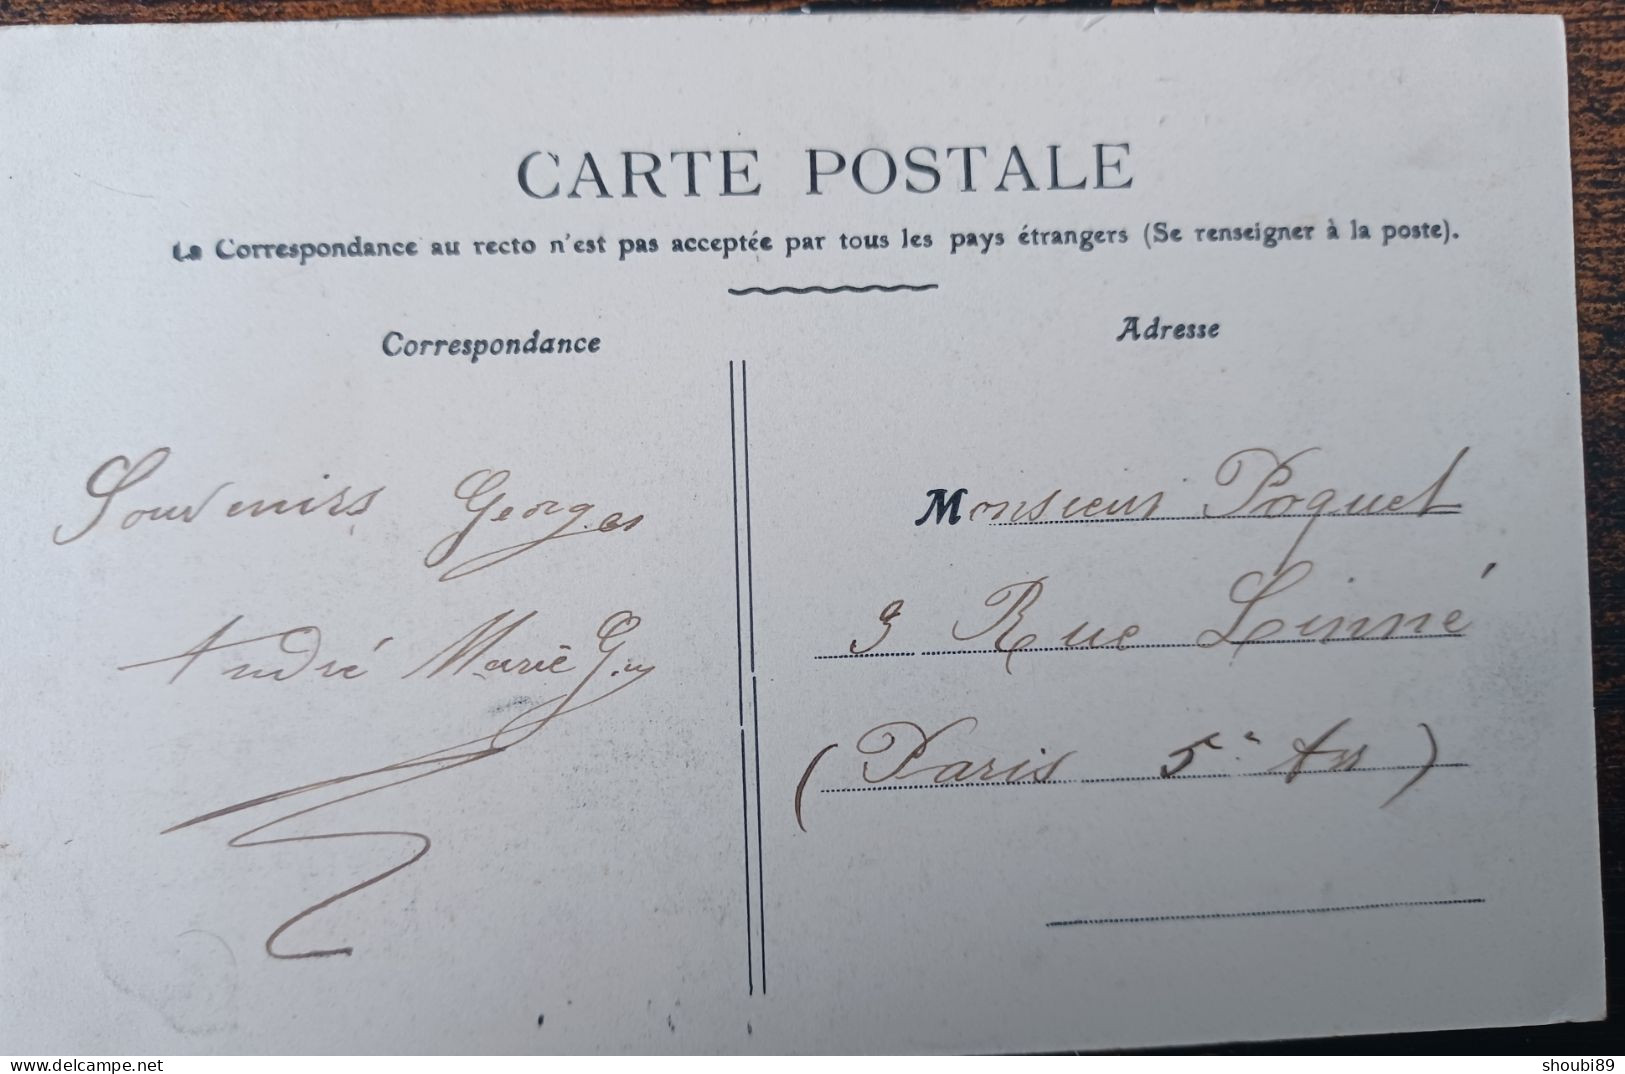 CARTE POSTALE
La Correspondance au recto n'est pas acceptée par tous les pays étrangers (Se renseigner à la poste).
Correspondance
Adresse
Souvenirs Georges
André Marie Guy
Monsieur Poquet
9 Rue Linné
(Paris 5e Arr)
shoubi89